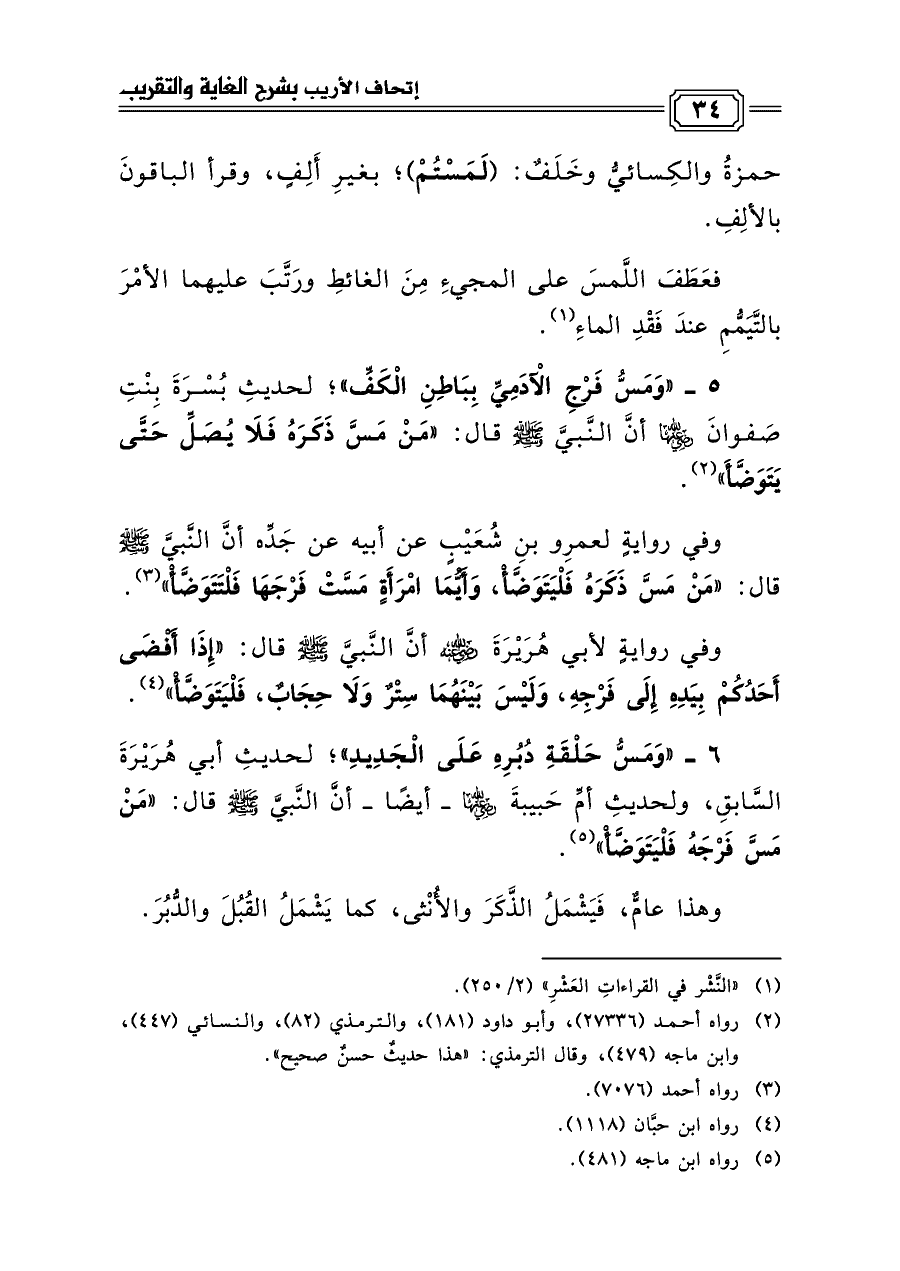 إتحاف الأريب بشرح الغاية والتقريب
٣٤
حمزةُ والكِسائيُّ وخَلَفٌ: (لَمَسْتُمْ)؛ بغيرِ أَلِفٍ، وقرأ الباقونَ
بالألِفِ.
فعَطَفَ اللَّمسَ على المجيءِ مِنَ الغائطِ ورَتَّبَ عليهما الأمْرَ
بالتَّيَمُّمِ عندَ فَقْدِ الماءِ(١).
٥ ـ «وَمَسُّ فَرْجِ الْآدَمِيِّ بِبَاطِنِ الْكَفِّ»؛ لحديثِ بُسْرَةَ بِنْتِ
صَفوانَ رضي الله عنها أنَّ النَّبيَّ ﷺ قال: «مَنْ مَسَّ ذَكَرَهُ فَلَا يُصَلِّ حَتَّى
يَتَوَضَّأَ»(٢).
وفي روايةٍ لعمرِو بنِ شُعَيْبٍ عن أبيه عن جَدِّه أنَّ النَّبيَّ ﷺ
قال: «مَنْ مَسَّ ذَكَرَهُ فَلْيَتَوَضَّأْ، وَأَيُّمَا امْرَأَةٍ مَسَّتْ فَرْجَهَا فَلْتَتَوَضَّأْ»(٣).
وفي روايةٍ لأبي هُرَيْرَةَ رضي الله عنه أنَّ النَّبيَّ ﷺ قال: «إِذَا أَفْضَى
أَحَدُكُمْ بِيَدِهِ إِلَى فَرْجِهِ، وَلَيْسَ بَيْنَهُمَا سِتْرٌ وَلَا حِجَابٌ، فَلْيَتَوَضَّأْ»(٤).
٦ ـ «وَمَسُّ حَلْقَةِ دُبُرِهِ عَلَى الْجَدِيدِ»؛ لحديثِ أبي هُرَيْرَةَ
السَّابقِ، ولحديثِ أمِّ حَبيبةَ رضي الله عنها ـ أيضًا ـ أنَّ النَّبيَّ ﷺ قال: «مَنْ
مَسَّ فَرْجَهُ فَلْيَتَوَضَّأْ»(٥).
وهذا عامٌّ، فَيَشْمَلُ الذَّكَرَ والأُنْثى، كما يَشْمَلُ القُبُلَ والدُّبُرَ.
(١) «النَّشْر في القراءاتِ العَشْرِ» (٢/٢٥٠).
(٢) رواه أحمد (٢٧٣٣٦)، وأبو داود (١٨١)، والترمذي (٨٢)، والنسائي (٤٤٧)،
وابن ماجه (٤٧٩)، وقال الترمذي: «هذا حديثٌ حسنٌ صحيح».
(٣) رواه أحمد (٧٠٧٦).
(٤) رواه ابن حبَّان (١١١٨).
(٥) رواه ابن ماجه (٤٨١).